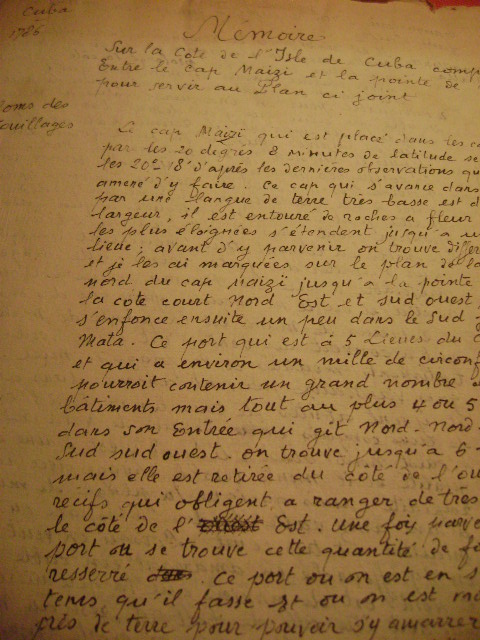 Cuba
1786
Mémoire
Sur la Côte de l'Isle de Cuba
Entre le Cap Maizi et la pointe de
pour servir au Plan ci joint
Noms des
Mouillages
Le cap Maizi qui est placé dans les
par les 20 degrés 8 minutes de latitude
les 20d 18' d'après les dernieres observations
amené d'y faire. Ce cap qui s'avance dans
par une langue de terre très basse est
largeur, il est entouré de roches a fleur
les plus éloignées s'étendent jusqu'a
lieue; avant d'y parvenir on trouve
et je les ai marquées sur le plan de
nord du cap Maizi jusqu'a la pointe
la côte court Nord Est et sud ouest
s'enfonce ensuite un peu dans le Sud
Mata. Ce port qui est à 5 Lieues du
et qui a environ un mille de
pourroit contenir un grand nombre
bâtiments mais tout au plus 4 ou 5
dans son Entrée qui git Nord-Nord-
Sud sud ouest. on trouve jusqu'a 6
mais elle est retirée du côté de
recifs qui obligent a ranger de très
le côté de l' Est. Une fois
port ou se trouve cette quantité de
resserré Ce port ou on est en
tems qu'il fasse et ou on est
près de terre pour pouvoir s'y amarrer